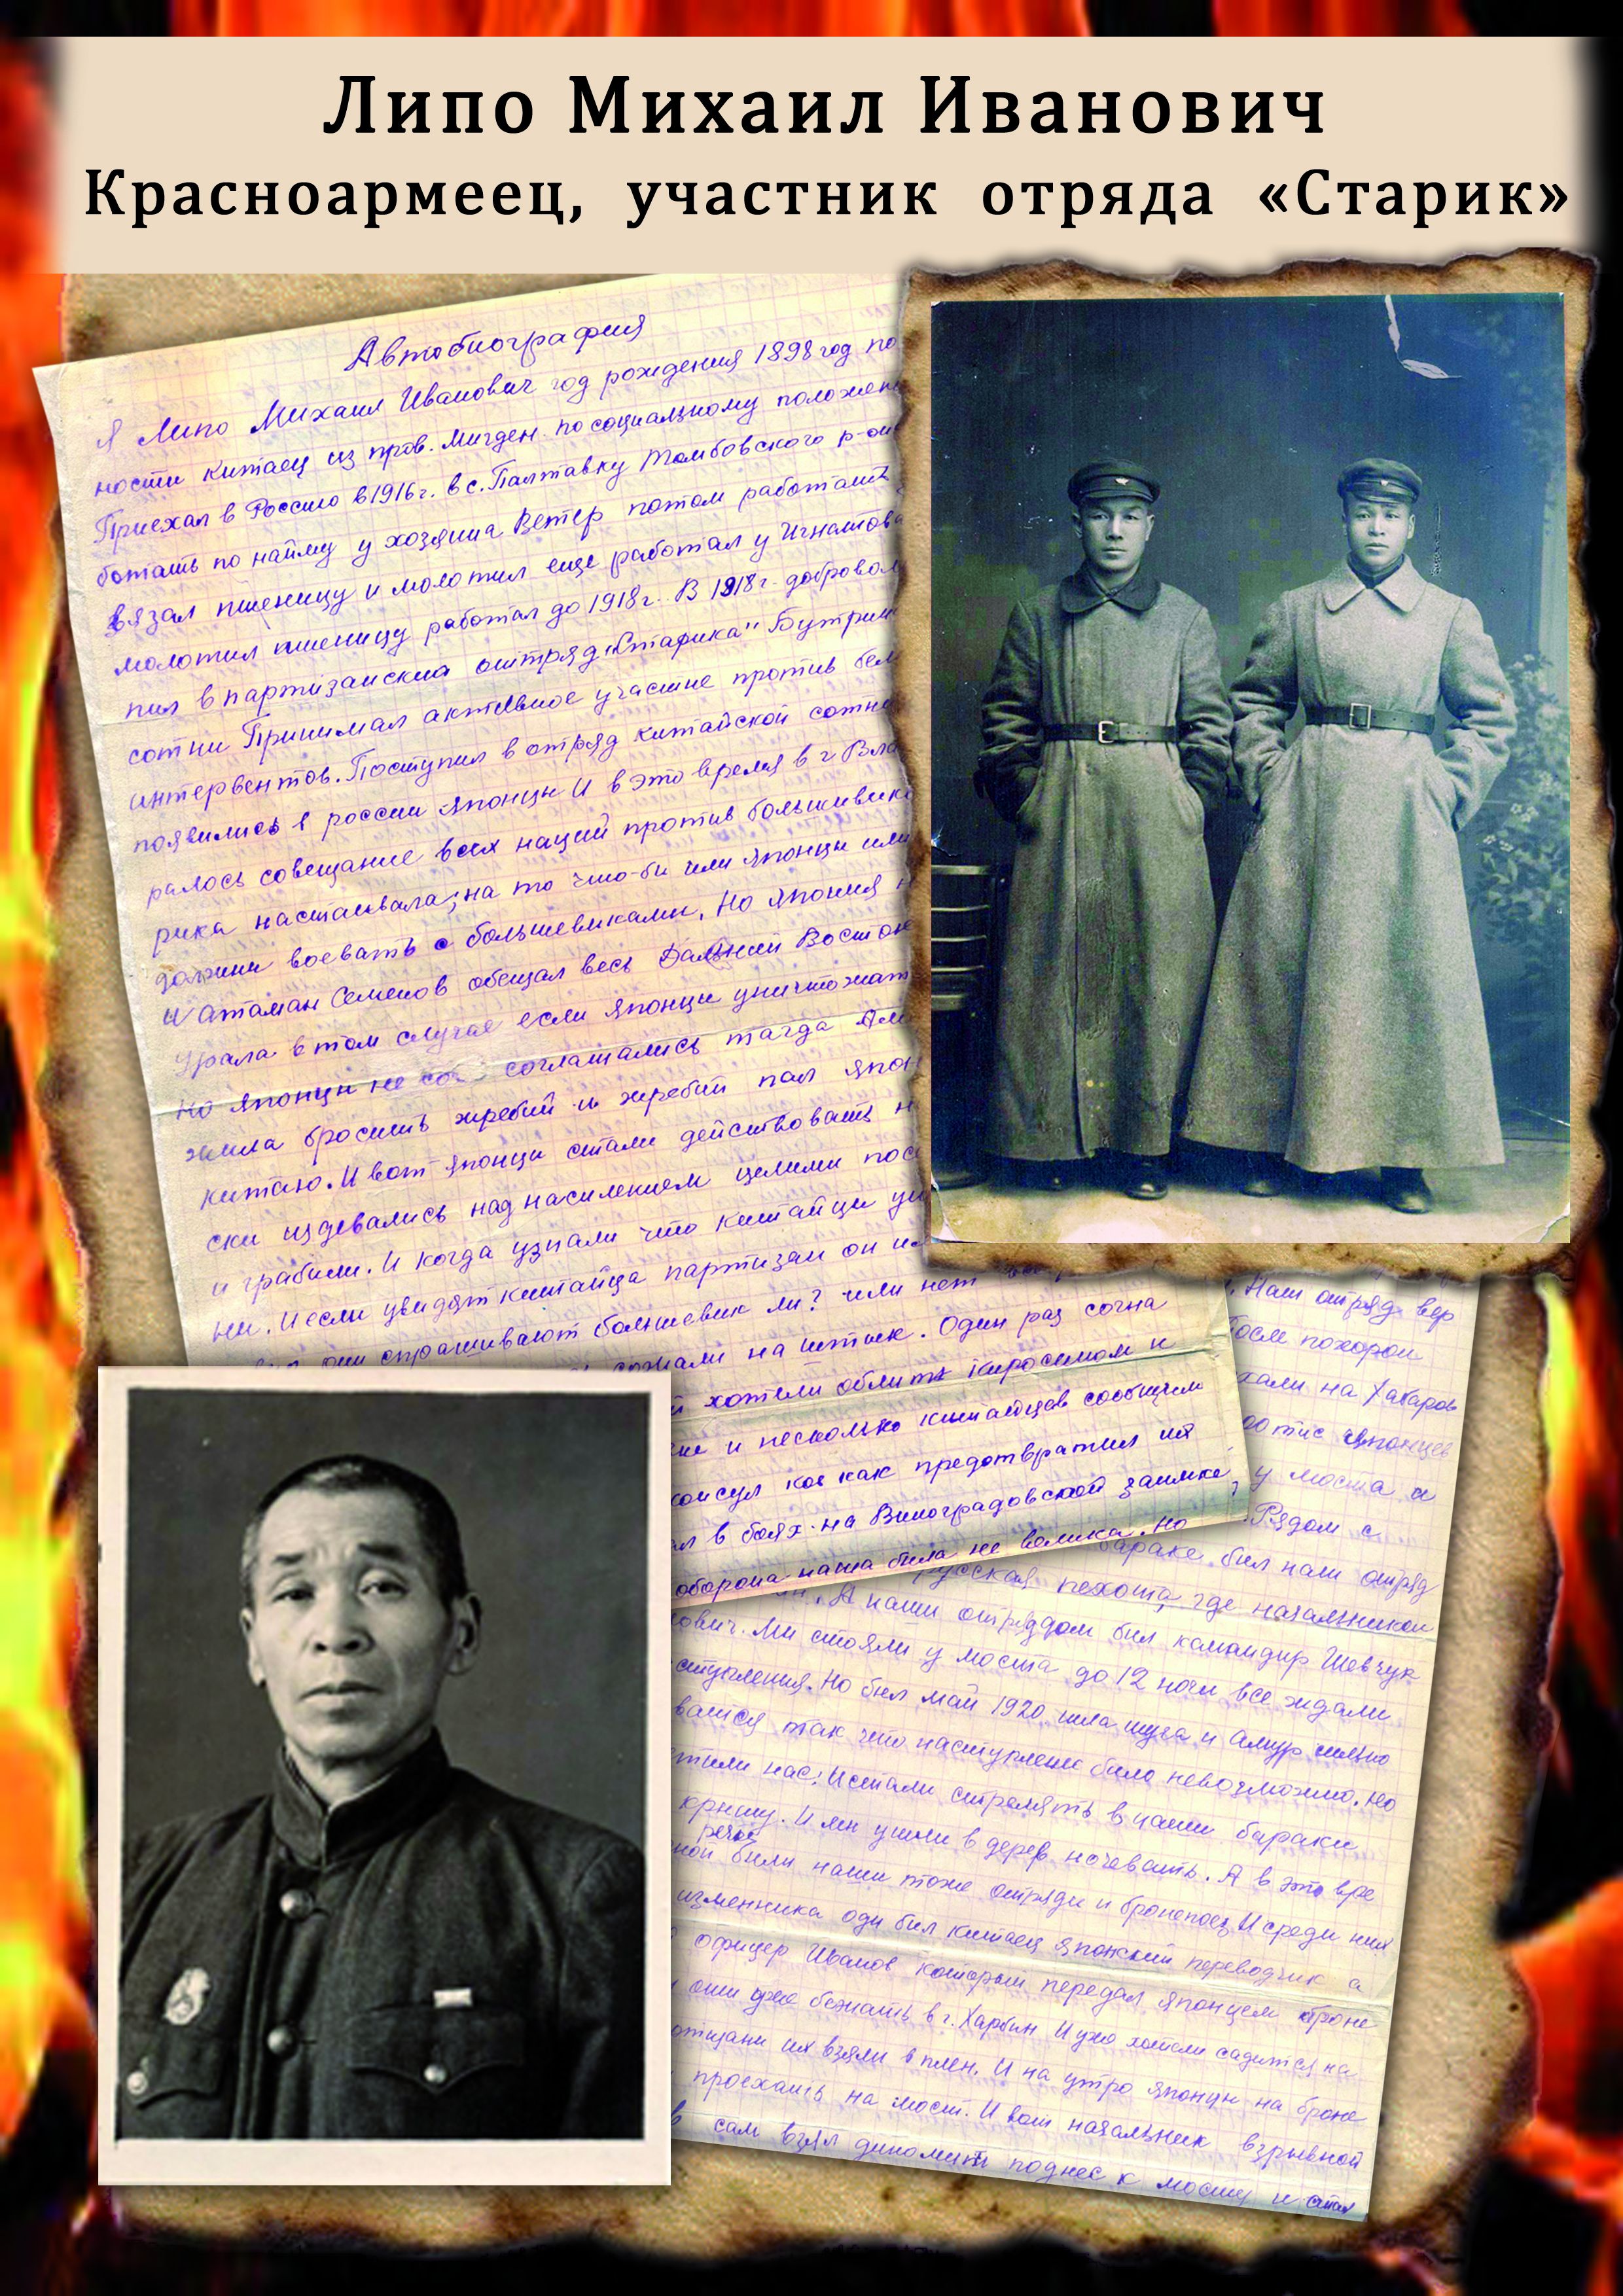 Липо Михаил Иванович
Красноармеец, участник отряда «Старик»
Автобиография
Я Липо Михаил Иванович год рождения 1898 год по
ности китаец из пров. Мигден по социалному положен
Приехал в Россию в 1916 г. в с. Палтавку Томбовского р-он
ботать по найму у хозяина Ветер потом работать
вязал пшеницу и молотил еще работал у Игнатова
молотил пшеницу работал до 1918 г. В 1918 г. доброволь
пил в партизански оттряд „Старика" Бутрин
сотни Принимал активное участие против бел
интервентов. Поступил в отряд китайской сотн
появились в россии японцы И в это время в г Вла
ралось совещание всех наций против большивико
рика настаивала; на то что-би или японцы или
должни воевать с большевиками. Но япония н
и атаман Семенов обещал весь Далний Восток
Урала в том случае если японцы уничтожат
но японцы не соглашались тагда Ам
жила бросить жребий и жребий пал япон
китаю. И вот японцы стали действовать н
ски издевались над насилением целими пос
и грабили. И когда узнали что китайци уч
ни. И если увидят китайца партизан он ил
они спрашивают большевик ли? или нет
сожали на штык. Один раз согна
хотели облить киросином и
и несколько китайцев сообщили
консул кое как предотвратил их
ал в боях на Виноградовской заимке,
оборона наша била не велика. Но
. Наш отряд вер
После похорон
хали на Хабаров
ротис японцев
у моста и
Рядом с
бараке бил наш отряд
русская пехота, где начальником
. А наши отряддом бил командир Шевчук
ович. Ми стояли у моста до 12 ночи все ждали
ступления. Но бил май 1920 шла шуга и Амур силно
вался так что наступление било невозможно. Но
етили нас: И стали стрелять в наши бараки
крышу. И мы ушли в дерев ночевать. А в это вре
речке
ной били наши тоже отряди и бронепоез И среди них
изменника оди бил китаец японский переводчик а
офицер Иванов который передал японцем броне
они уже бежать в г. Харбин И ухо хотели садится на
их взяли в плен. И на утро японцы на броне
проехать на мост. И вот начальник взрывной
сам взял динамит поднес к мосту и стал